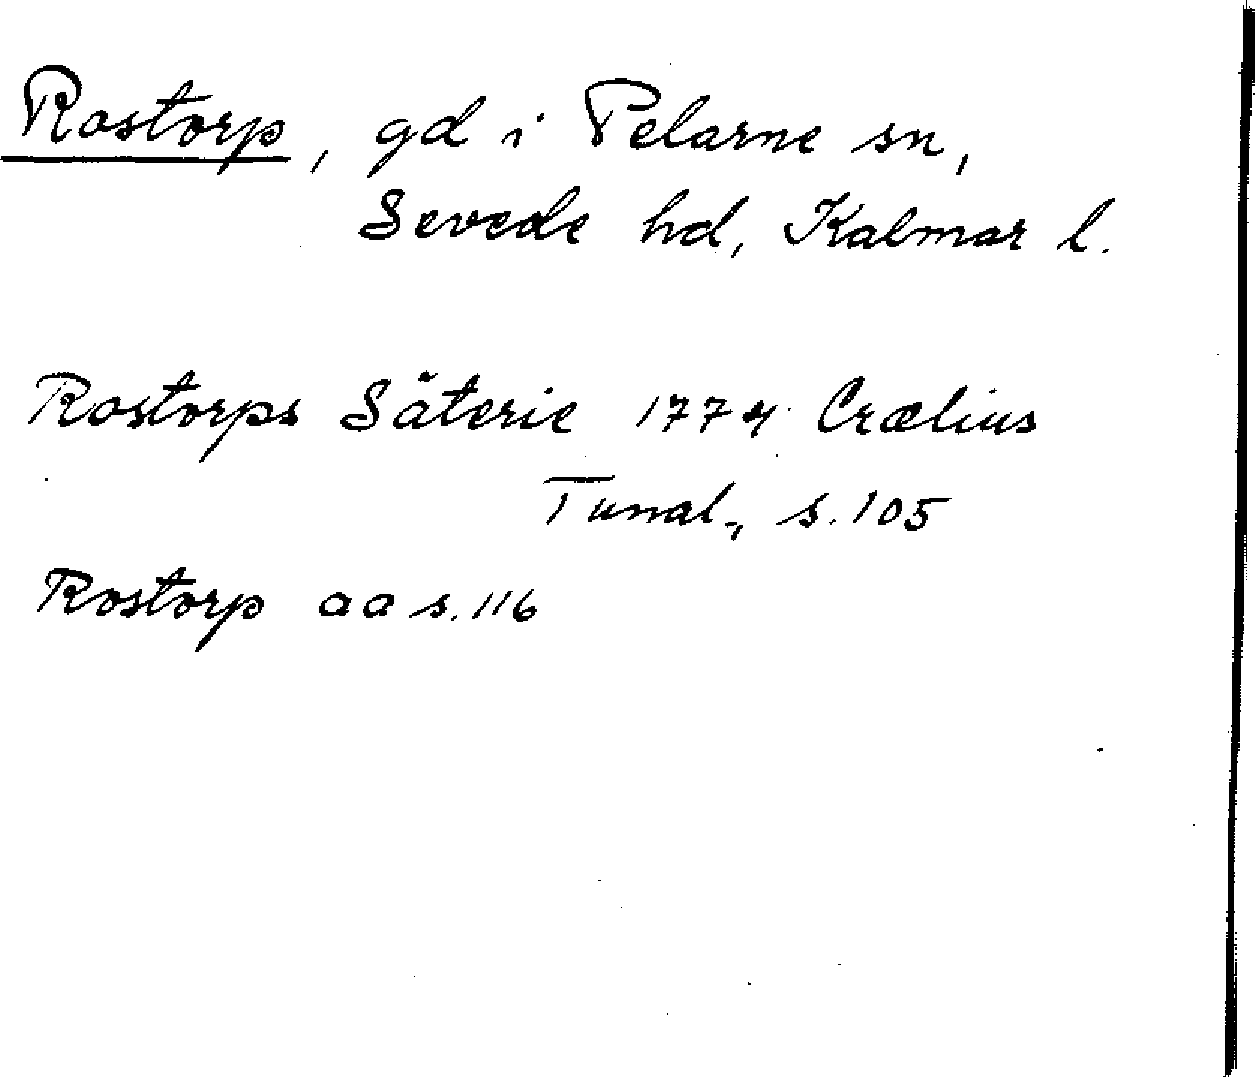 Rostorp, gd i Pelarne sn,
Sevede hd, Kalmar l.
Rostorps Säterie 1774 Crælius
Tunal., s. 105
Rostorp aa s. 116